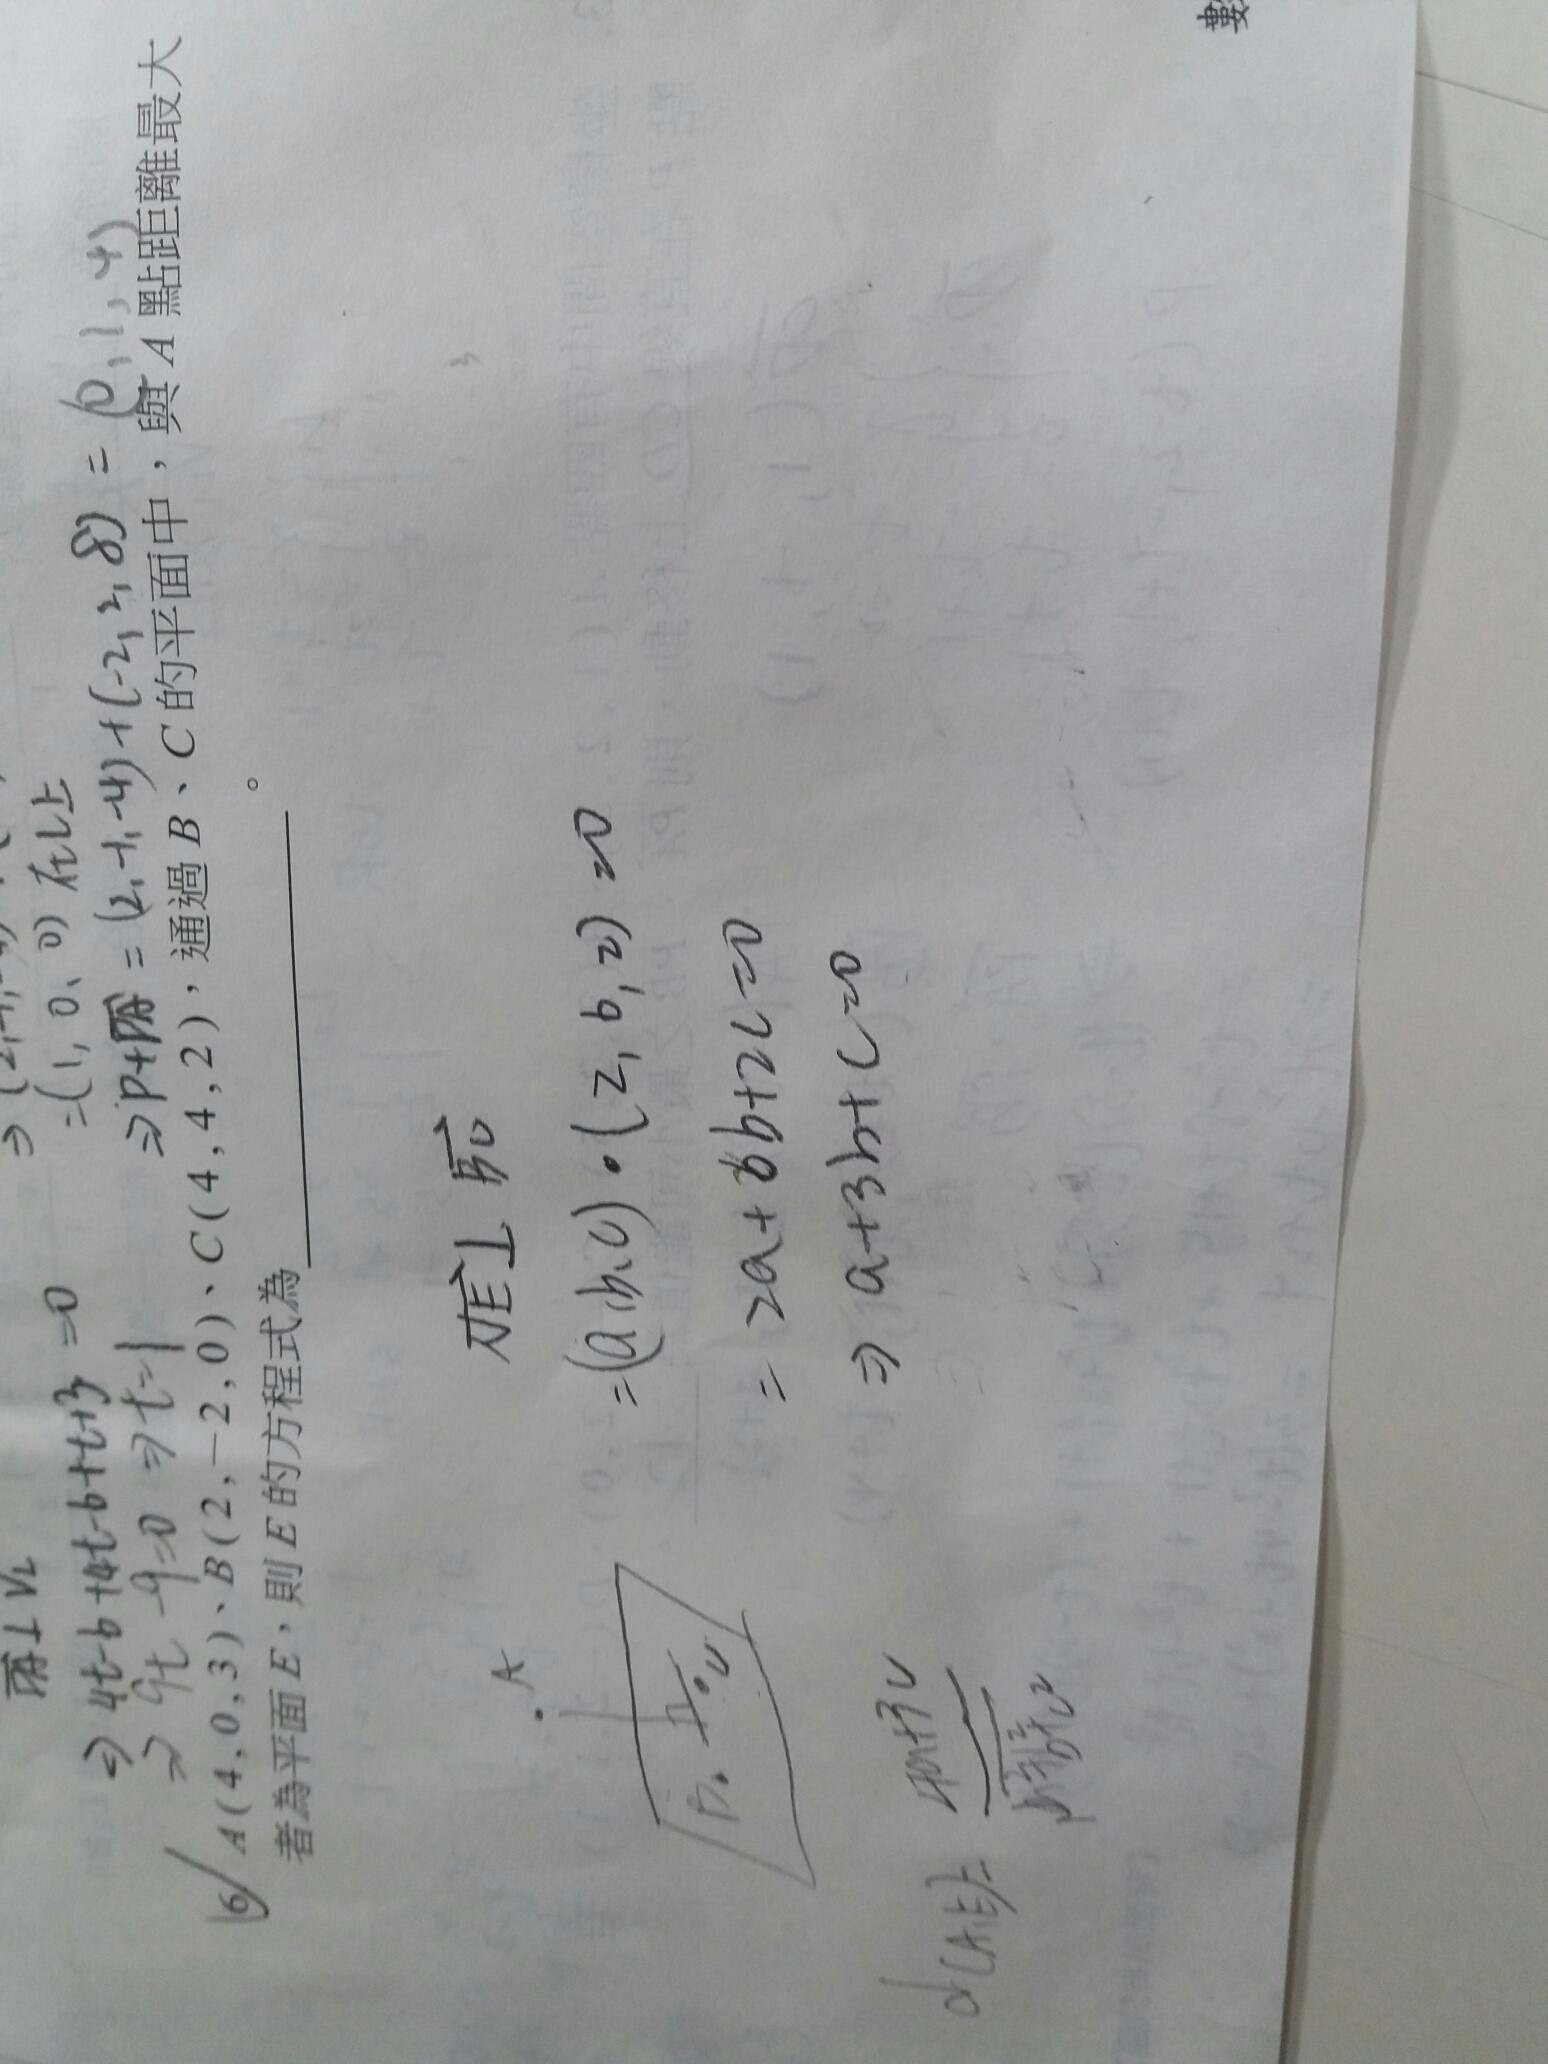 PA⊥VL
⇒ 4t-6+4t-6+t+3=0
⇒ 9t-9=0 ⇒ t=1
=(1,0,0)在L上
= (2,-1,-4)+(-2,2,8) = (0,1,4)
6/ A(4,0,3)、B(2,-2,0)、C(4,4,2)，通過B、C的平面中，與A點距離最大
者為平面E，則E的方程式為＿＿＿＿＿＿。
NE⊥BC
=(a,b,c)·(2,6,2)=0
= 2a+6b+2c=0
⇒ a+3b+c=0
A
B
C
d(A,E)=
數